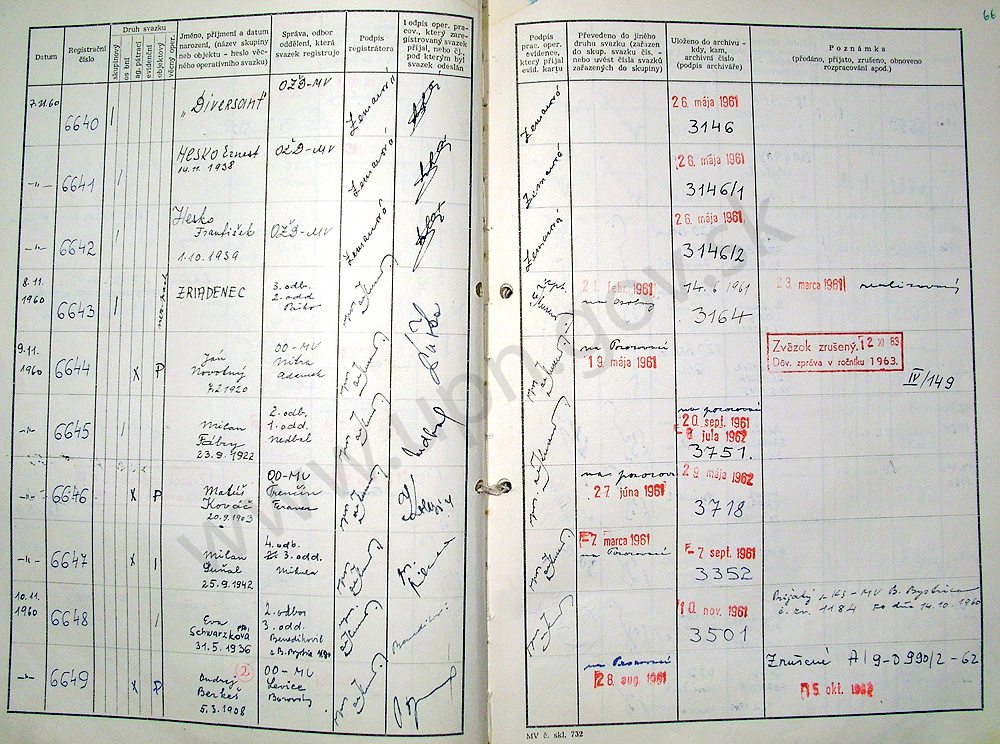 66
Datum
Registrační číslo
Druh svazku
skupinový
osobní
ag. pátrací
evidenční
objektový
věcný oper.
Jméno, příjmení a datum
narození, (název skupiny
neb objektu - heslo věc-
ného operativního svazku)
Správa, odbor
oddělení, která
svazek registruje
Podpis
registrátora
Podpis oper. pra-
cov., který zare-
gistrovaný svazek
přijal, nebo čj.
pod kterým byl
svazek odeslán
Podpis
prac. oper.
evidence,
který přijal
evid. kartu
Převedeno do jiného
druhu svazku (zařazen
do skup. svazku čís. -
nebo uvést čísla svazků
zařazených do skupiny)
Uloženo do archivu -
kdy, kam,
archivní číslo
(podpis archiváře)
Poznámka
(předáno, přijato, zrušeno, obnoveno
rozpracování apod.)
7.11.60
6640
"Diversant"
OZD-MV
Zemanová
Zemanová
26. mája 1961
3146
-"-
6641
Hesko Ernest
14.11.1938
OZD-MV
Zemanová
Zemanová
26. mája 1961
3146/1
-"-
6642
Hesko
František
1.10.1939
OZD-MV
Zemanová
Zemanová
26. mája 1961
3146/2
8.11.
1960
6643
ZRIADENEC
3. odb.
2. odd
21. febr. 1961
na osobný
14.6.1961
3164
23. marca 1961
realizovaný
9.11.
1960
6644
x P
Ján
Novotný
1920
OO-MV
Nitra
Adamek
na Pozorovací
19. mája 1961
Zväzok zrušený. 12 XI 63
Dôv. zpráva v ročníku 1963.
IV/149
-"-
6645
Milan
Fábry
23.9.1922
2. odb.
1. odd.
Nedbal
Nedbal
na pozorovací
20. sept. 1961
3 jula 1962
3751.
-"-
6646
x P
Matúš
Kováč
20.9.1903
OO-MV
Trenčín
na pozorov
27 júna 1961
29. mája 1962
3718
-"-
6647
x
Milan
Guňal
25.9.1942
4. odb.
3. odd.
Mikula
-7 marca 1961
na Pozorovací
-7. sept. 1961
3352
10.11.
1960
6648
Eva
Schwarzková
31.5.1936
2. odbor
3. odd.
Benedikovič
z B. Bystrica
10. nov. 1961
3501
Prijatý z KS-MV B. Bystrica
č. zv. 1184 dňa 14.10.1960
-"-
6649
x P
2
Ondrej
Berkeš
5.3.1908
OO-MV
Levice
Borovský
na Pozorovací
28. aug. 1961
Zrušené A/9-0990/2-62
5. okt. 1962
MV č. skl. 732
www.upn.gov.sk